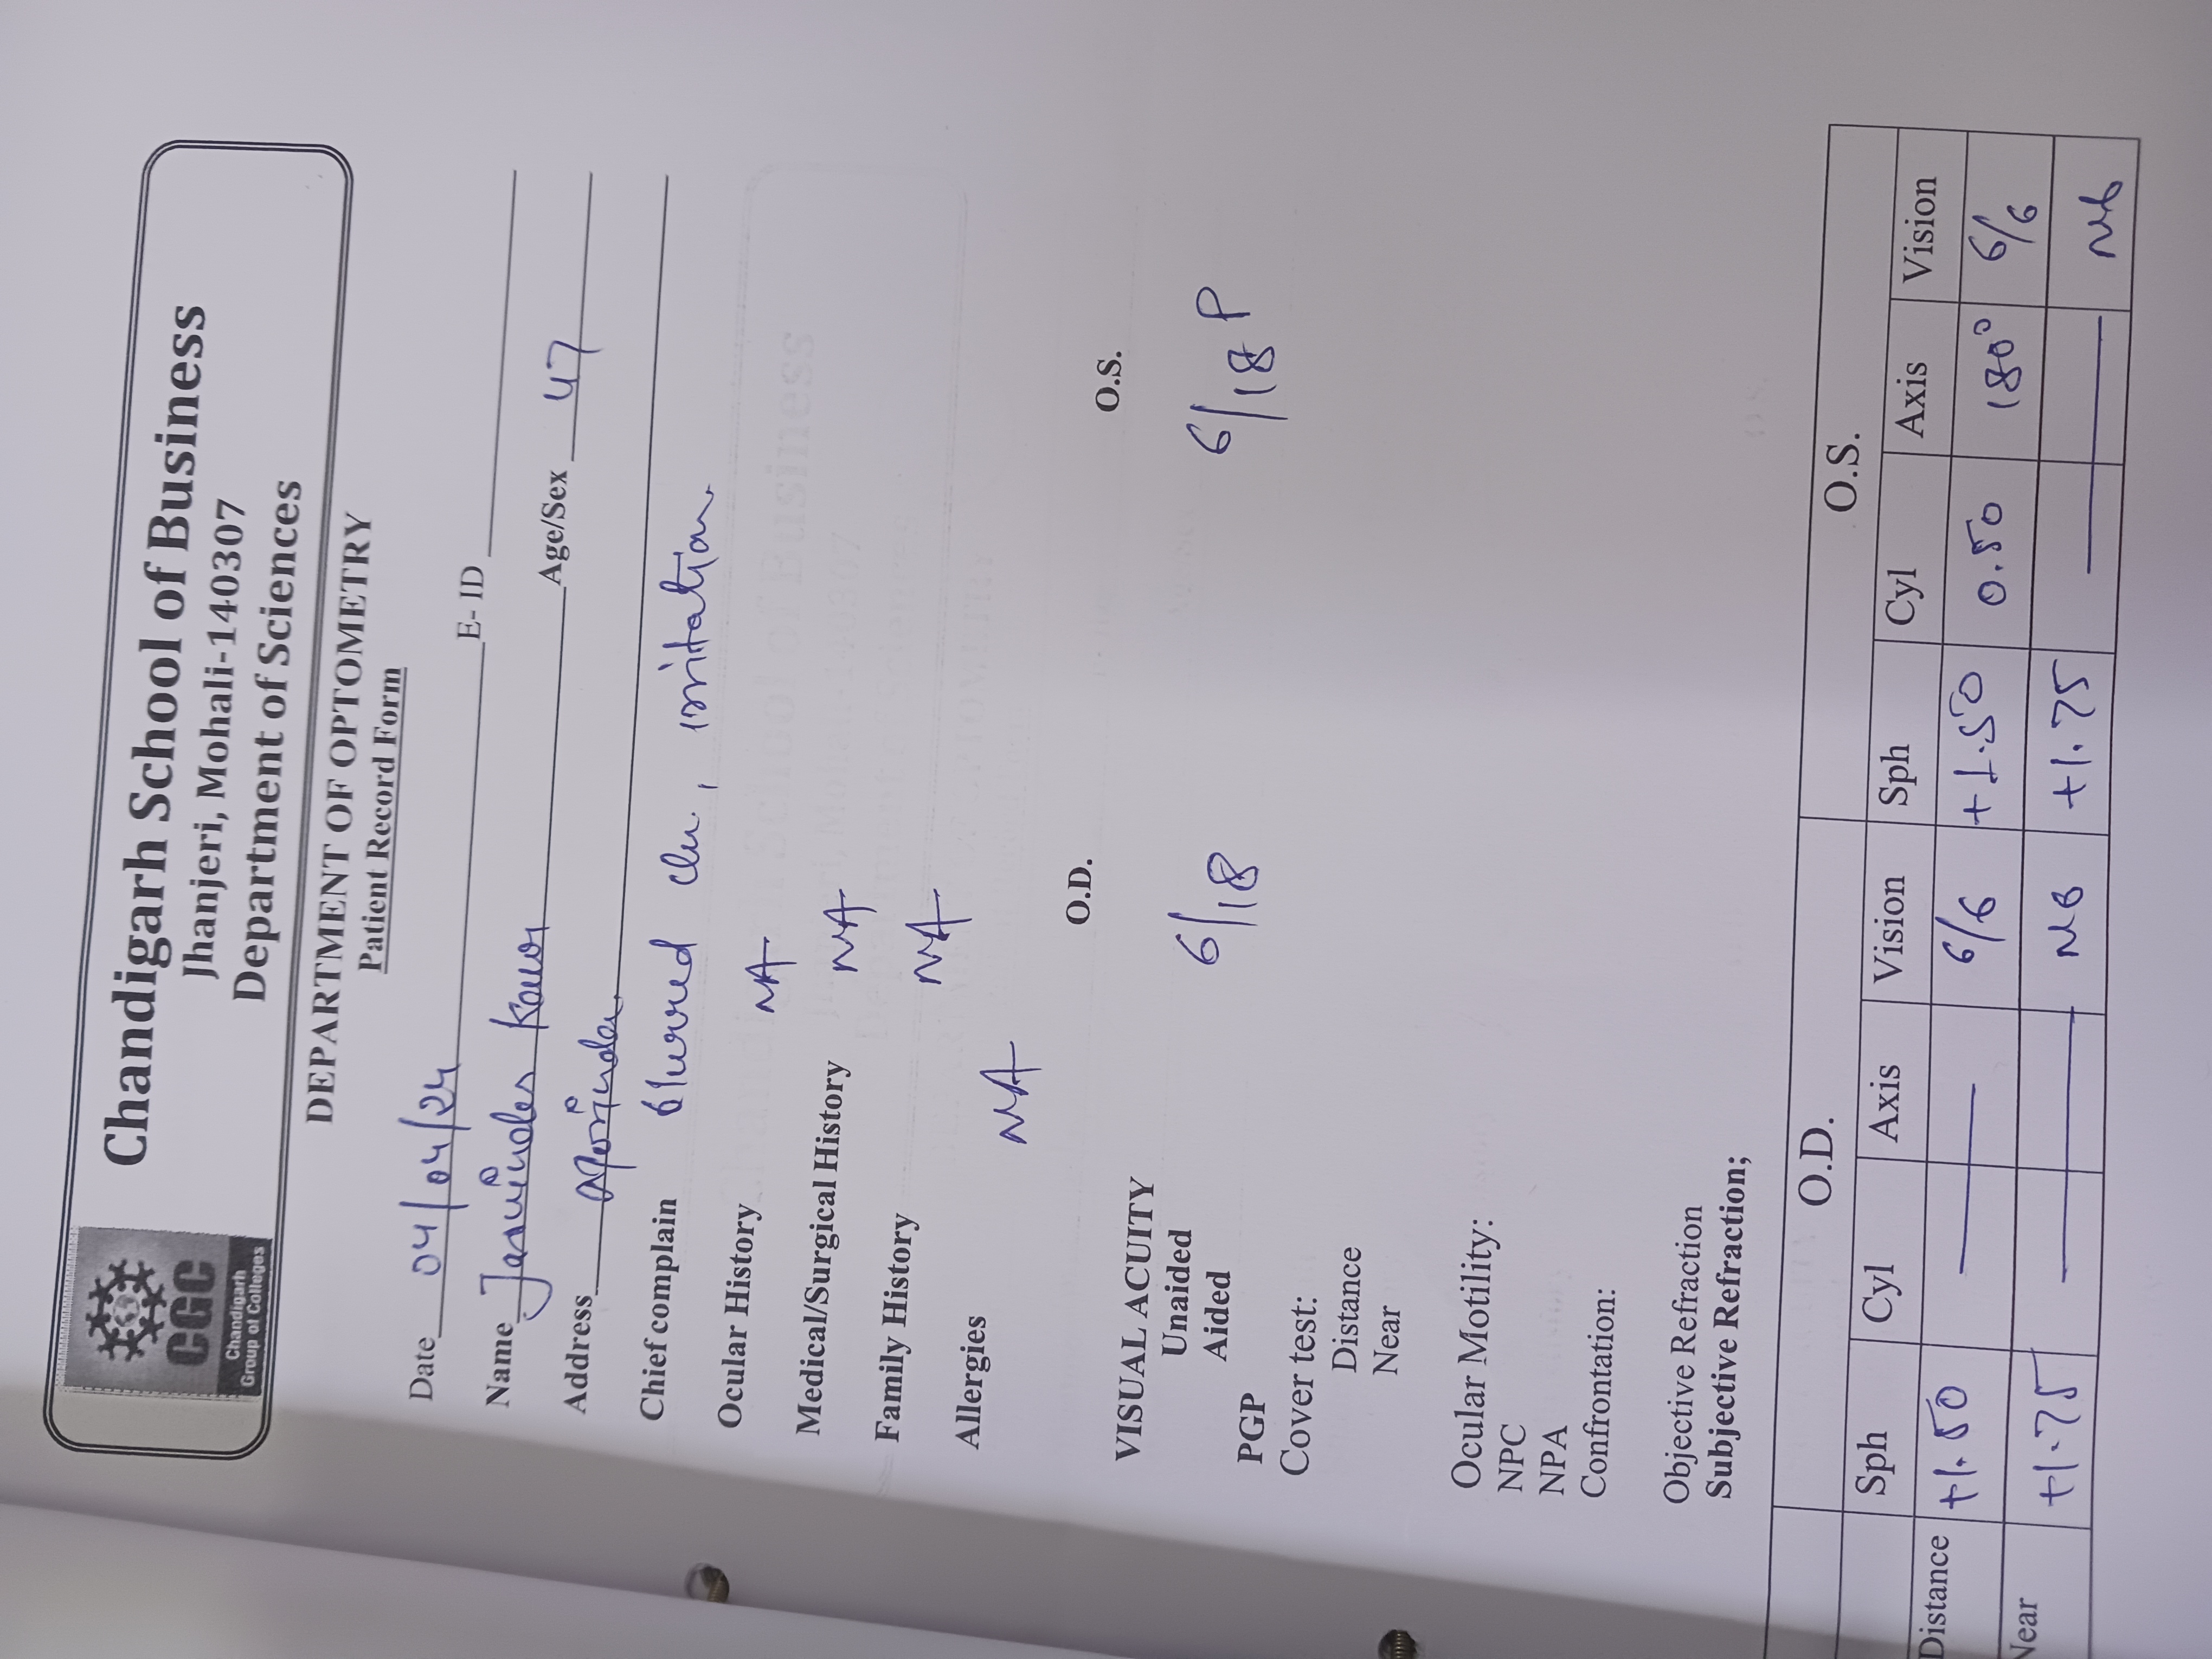 CGC
Chandigarh
Group of Colleges
Chandigarh School of Business
Jhanjeri, Mohali-140307
Department of Sciences
DEPARTMENT OF OPTOMETRY
Patient Record Form
Date 04/04/24 E- ID
Name Jasvinder Kaur Age/Sex 47
Address Morinda
Chief complain blurred , irritation
Ocular History NA
Medical/Surgical History NA
Family History NA
Allergies NA
O.D. O.S.
VISUAL ACUITY
Unaided 6/18 6/18 P
Aided
PGP
Cover test:
Distance
Near
Ocular Motility:
NPC
NPA
Confrontation:
Objective Refraction
Subjective Refraction;
O.D. O.S.
Sph Cyl Axis Vision Sph Cyl Axis Vision
Distance +1.50 — 6/6 +1.50 0.50 180° 6/6
Near +1.75 — N6 +1.75 — N6